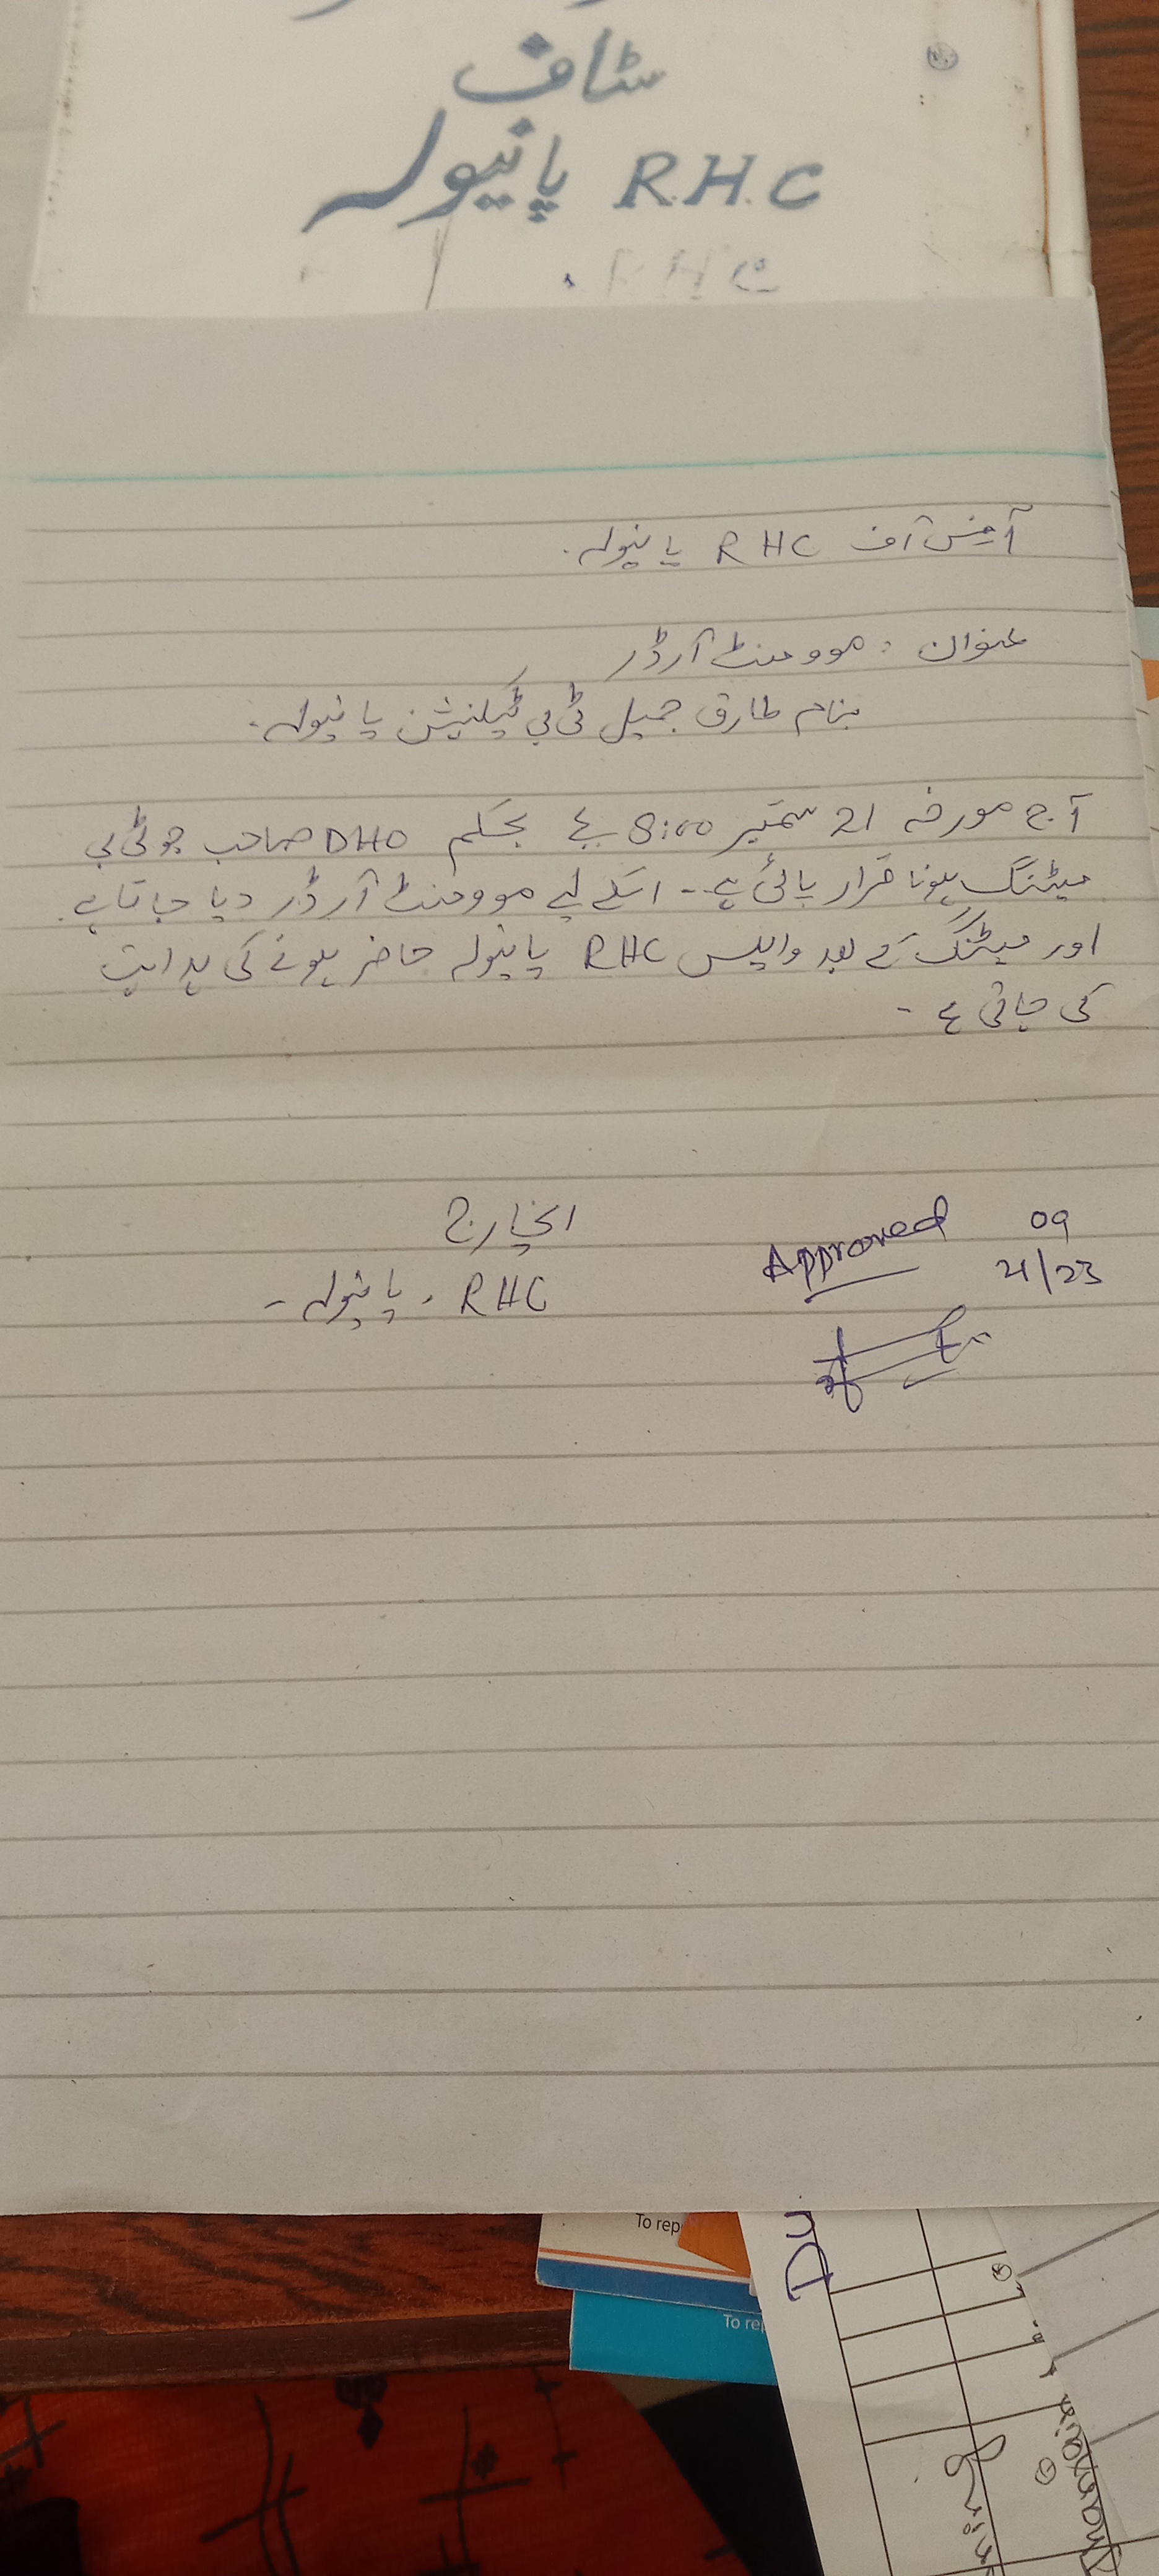 سٹاف
R.H.C پانیولہ
RHC
آفس آف RHC پانیولہ.
عنوان : موومنٹ آرڈر
بنام طارق جمیل ٹی بی ٹیکنیشن پانیولہ.
آج مورخہ 21 ستمبر 8:00 بجے بحکم DHO صاحب جو ٹی بی
میٹنگ ہونا قرار پائی ہے۔۔ اسکے لیے موومنٹ آرڈر دیا جاتا ہے.
اور میٹنگ کے بعد واپس RHC پانیولہ حاضر ہونے کی ہدایت
کی جاتی ہے -
انچارج
RHC . پانیولہ -
Approved 09
21/23
To rep
To rep
Du